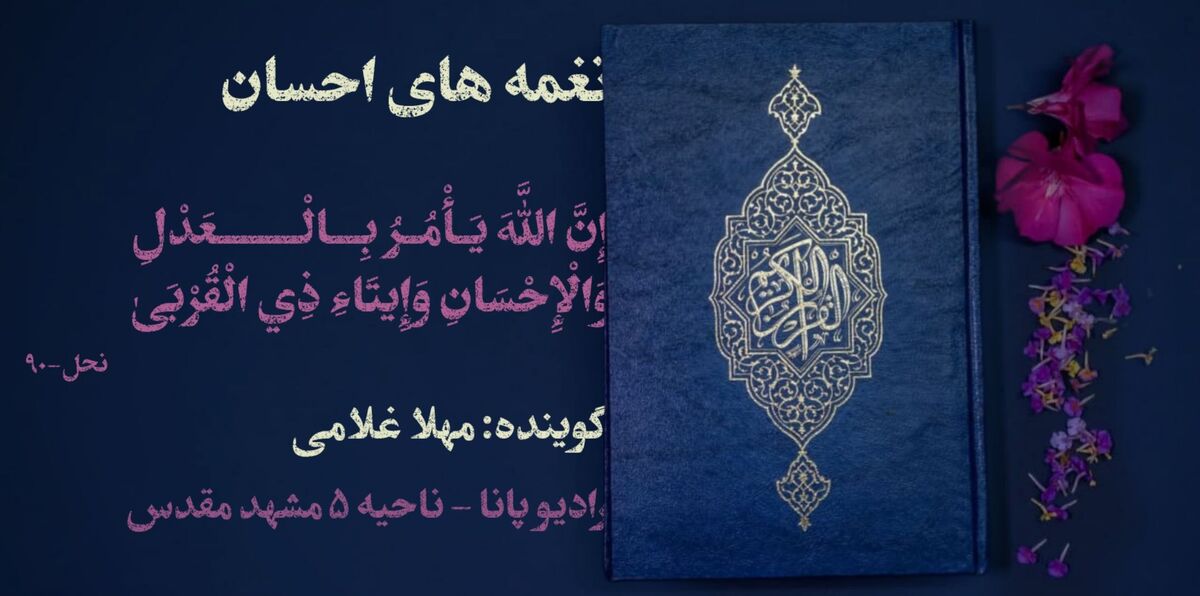 نغمه های احسان
إِنَّ اللَّهَ يَأْمُرُ بِالْعَدْلِ
وَالْإِحْسَانِ وَإِيتَاءِ ذِي الْقُرْبَىٰ
نحل-۹۰
گوینده: مهلا غلامی
رادیو پانا - ناحیه ۵ مشهد مقدس
القرآن الكريم